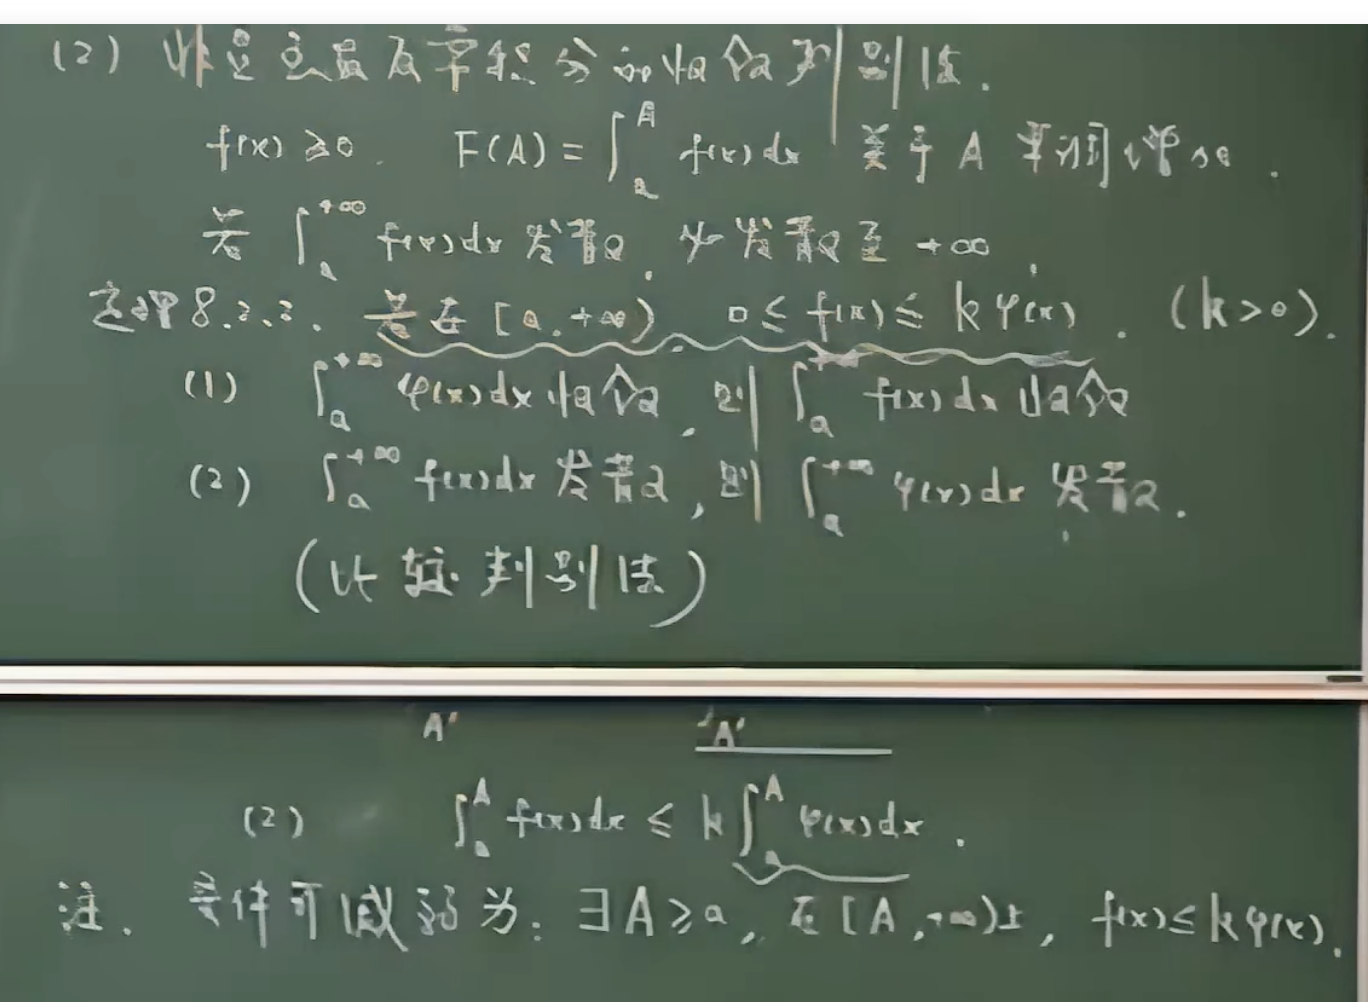 (2) 非负函数反常积分的收敛判别法.
f(x) ≥ 0. F(A) = ∫_a^A f(x)dx 关于 A 单调递增.
若 ∫_a^{+∞} f(x)dx 发散, 必发散至 +∞.
定理8.2.2. 若在 [a,+∞) 0 ≤ f(x) ≤ kφ(x). (k>0).
(1) ∫_a^{+∞} φ(x)dx 收敛, 则 ∫_a^{+∞} f(x)dx 收敛
(2) ∫_a^{+∞} f(x)dx 发散, 则 ∫_a^{+∞} φ(x)dx 发散.
(比较判别法)
A' A'
(2) ∫_a^A f(x)dx ≤ k∫_a^A φ(x)dx.
注. 条件可减弱为: ∃A≥a, 在[A,+∞)上, f(x)≤kφ(x).